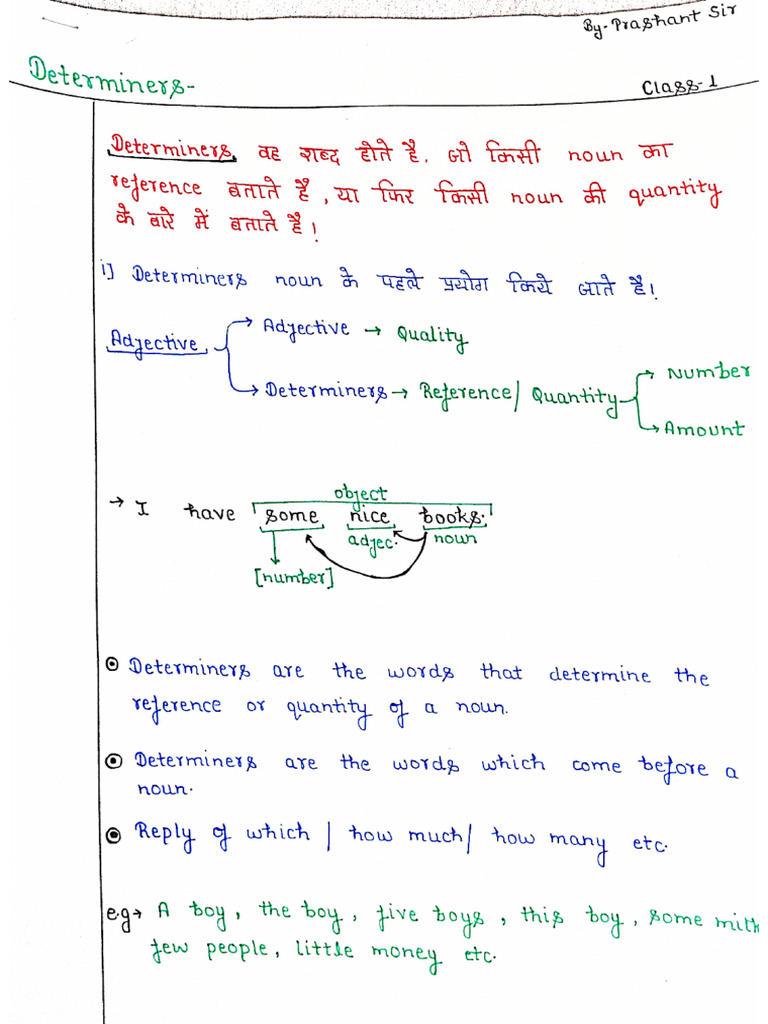 By-Prashant Sir
Determiners-
Class-1
Determiners, वह शब्द होते है, जो किसी noun का
reference बताते हैं, या फिर किसी noun की quantity
के बारे में बताते हैं!
i] Determiners noun के पहले प्रयोग किये जाते है।
Adjective
Adjective → Quality
Determiners → Reference/ Quantity
Number
Amount
object
→ I have some nice books.
adjec. noun
[number]
Determiners are the words that determine the
reference or quantity of a noun.
Determiners are the words which come before a
noun.
Reply of which / how much/ how many etc.
e.g→ A boy, the boy, five boys, this boy, some milk
few people, little money etc.